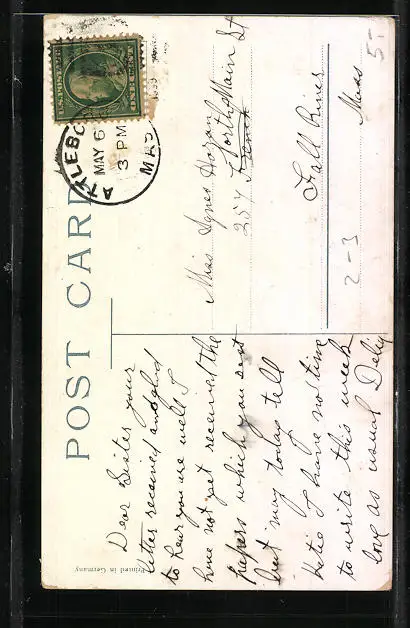 POST CARD
Dear Sister your
letter received and glad
to hear you are well I
have not yet received the
papers which you sent
but may today tell
Katie I have no time
to write this week
love as usual Delia
Printed in Germany
U.S. POSTAGE
ONE CENT
ATTLEBORO
MAY 6
3 PM
MASS
Miss Agnes Hogan
257 North Main St
Fall River
Mass
2-3
5-